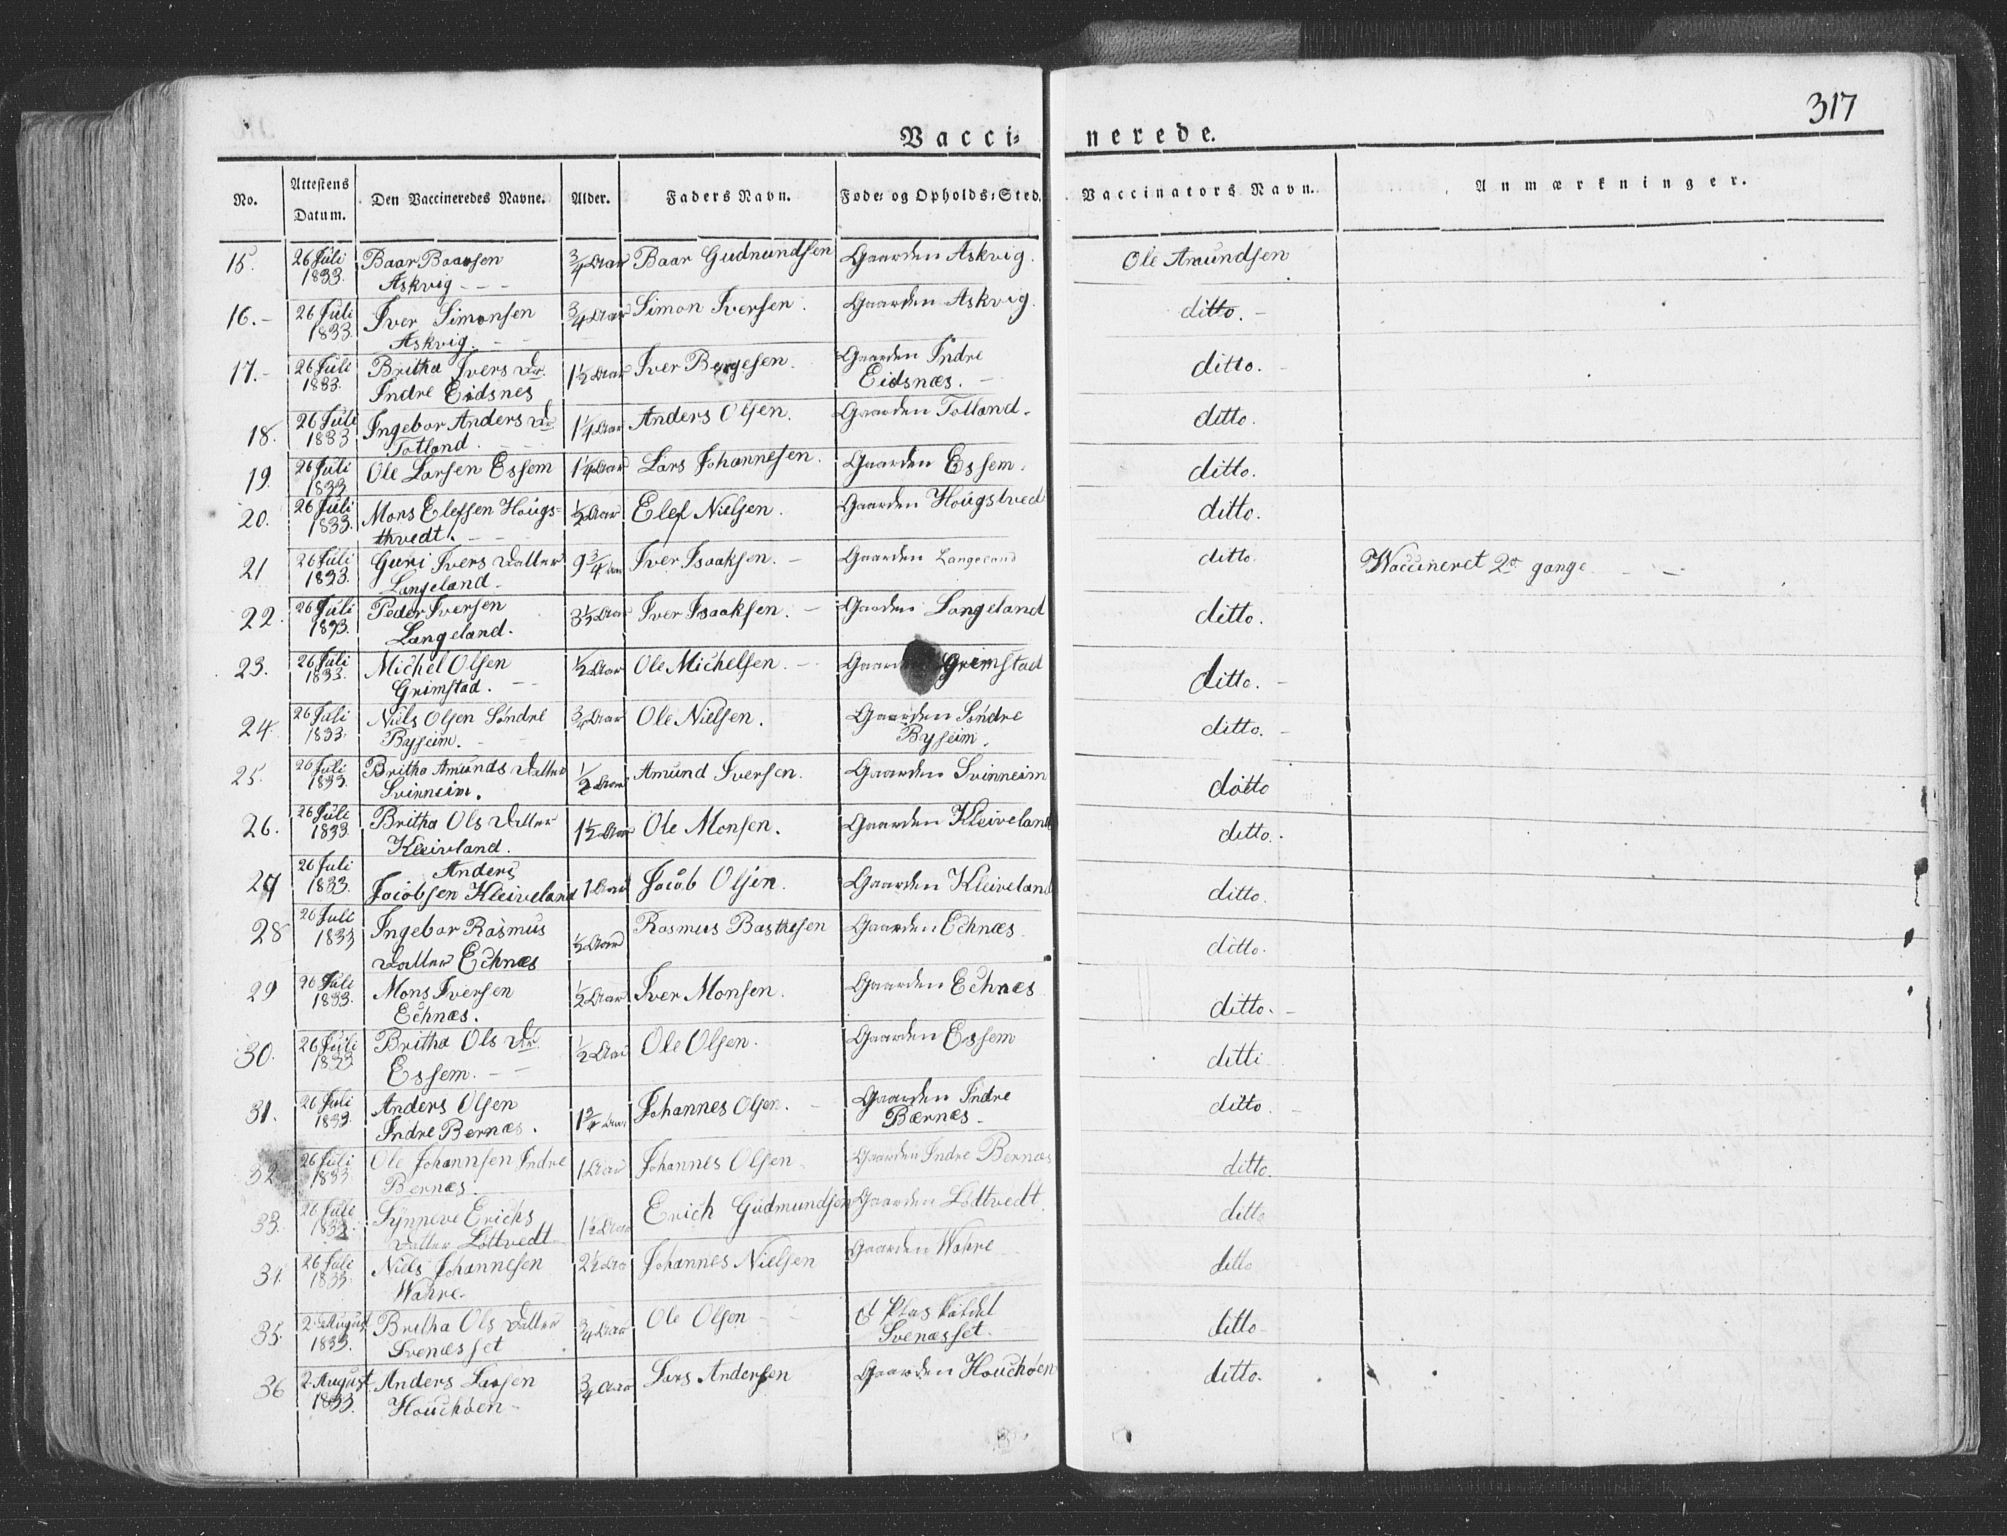 317
Vacci- nerede.
No. Attestens Datum. Den Vaccineredes Navne. Alder. Faders Navn. Føde- og Opholds-Sted. Vaccinators Navn. Anmærkninger.
15. 26 Juli 1833. Baar Baarsen Askvig - - - 3/4 Aar Baar Gudmundsen Gaarden Askvig. Ole Amundsen
16. - 26 Juli 1833. Iver Simonsen Askvig. - - 3/4 Aar Simon Iversen. Gaarden Askvig. ditto. -
17. - 26 Juli 1833. Britha Ivers Dr. Indre Eidsnes 1 1/2 Aar Iver Børgesen. Gaarden Indre Eidsnæs. - ditto.
18. 26 Juli 1833 Ingebor Anders Dr Totland. - - 1 1/4 Aar Anders Olsen. Gaarden Totland. ditto.
19. 26 Juli 1833 Ole Larsen Essem 1 1/4 Aar Lars Johannesen. Gaarden Essem. ditto.
20. 26 Juli 1833. Mons Elefsen Hougs- thvedt. - - 1/2 Aar Elef Nielsen. Gaarden Hougstved ditto.
21 26 Juli 1833. Guri Ivers Datter Langeland. 9 3/4 Aar Iver Isaaksen. - Gaarden Langeland ditto. Waccineret 2de gange - -
22. 26 Juli 1833. Peder Iversen Langeland. 3 1/2 Aar Iver Isaaksen. - Gaarden Langeland ditto.
23. 26 Juli 1833. Michel Olsen Grimstad. - - 1/2 Aar Ole Michelsen. - Gaarden Grimstad ditto. -
24. 26 Juli 1833. Niels Olsen Søndre Byseim. - 3/4 Aar Ole Nielsen. Gaarden Søndre Byseim. ditto. -
25. 26 Juli 1833. Britha Amunds Datter Svinneim. 1/2 Aar Amund Iversen. Gaarden Svinneim ditto
26. 26 Juli 1833. Britha Ols Datter Kleiveland. 1 1/2 Aar Ole Monsen. Gaarden Kleiveland ditto.
27 26 Juli 1833. Anders Jacobsen Kleiveland 1 Aar Jacob Olsen. Gaarden Kleiveland ditto.
28 26 Juli 1833 Ingebor Rasmus Datter Echnæs 1/2 Aar Rasmus Basthesen Gaarden Echnæs ditto.
29 26 Juli 1833. Mons Iversen Echnæs. 1/2 Aar Iver Monsen. Gaarden Echnes ditto. -
30. 26 Juli 1833 Britha Ols Dr. Essem. - - 1/2 Aar Ole Olsen. Gaarden Essem ditti
31. 26 Juli 1833. Anders Olsen Indre Bernæs. 1 3/4 Aar Johannes Olsen. - Gaarden Indre Bærnæs. ditto. -
32 26 Juli 1833. Ole Johannsen Indre Bernæs. 1 Aar Johannes Olsen. Gaarden Indre Bernæs ditto.
33. 26 Juli 1833. Synneve Erichs Datter Lottvedt 1 1/2 Aar Erich Gudmundsen Gaarden Lottvedt. ditto
34. 26 Juli 1833. Niels Johannesen Wahre. 2 1/2 Aar Johannes Nielsen Gaarden Wahre ditto
35. 2 August 1833. Britha Ols Datter Svenæsset 3/4 Aar Ole Olsen - et Plas kaldet Svenæsset. ditto
36 2 August 1833. Anders Larsen Houchøen - 3/4 Aar Lars Andersen Gaarden Houchøen ditto.